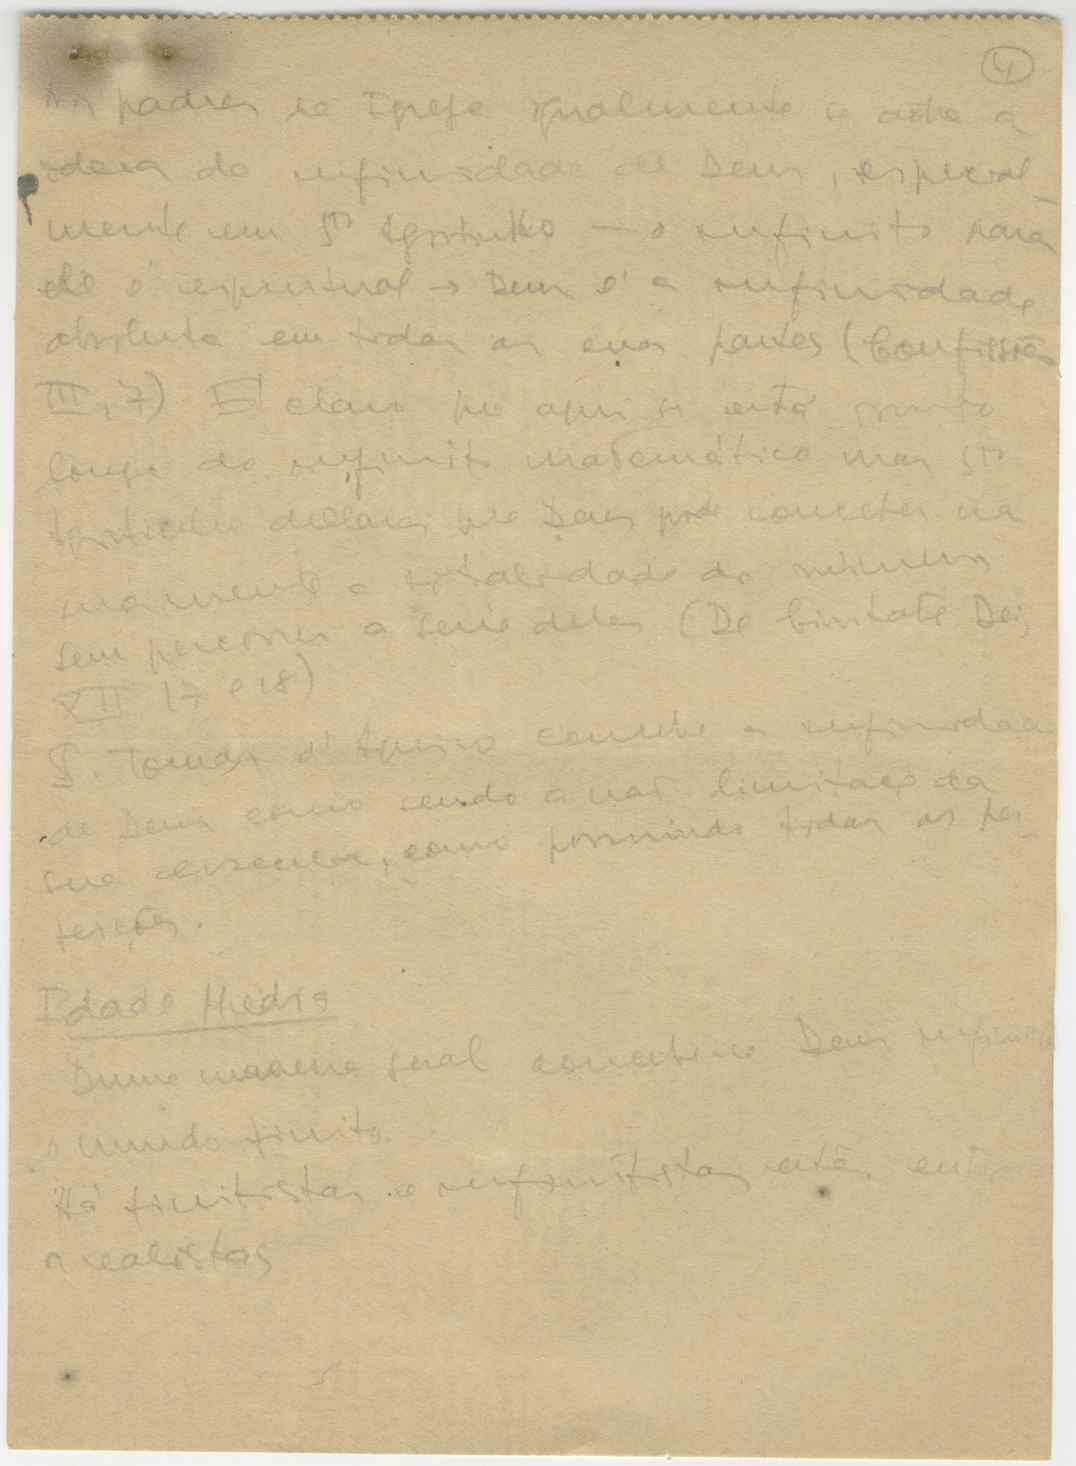 4
padres da Igreja igualmente se acha a
ideia da infinidade de Deus, especial-
mente em Sto Agostinho — o infinito para
ele é espiritual → Deus é a infinidade
absoluta em todas as suas partes (Confissões
III, 7) É claro que aqui se está muito
longe do infinito matemático mas Sto
Agostinho declara que Deus pode conceber
a totalidade dos números
sem percorrer a série deles (De Civitate Dei,
XII 17 e 18)
S. Tomás d'Aquino concebe a infinidade
de Deus como sendo a não limitação da
sua essência, como possuindo todas as per-
feições.
Idade Média
Duma maneira geral Deus infinito
o mundo finito.
Há finitistas e infinitistas
os realistas